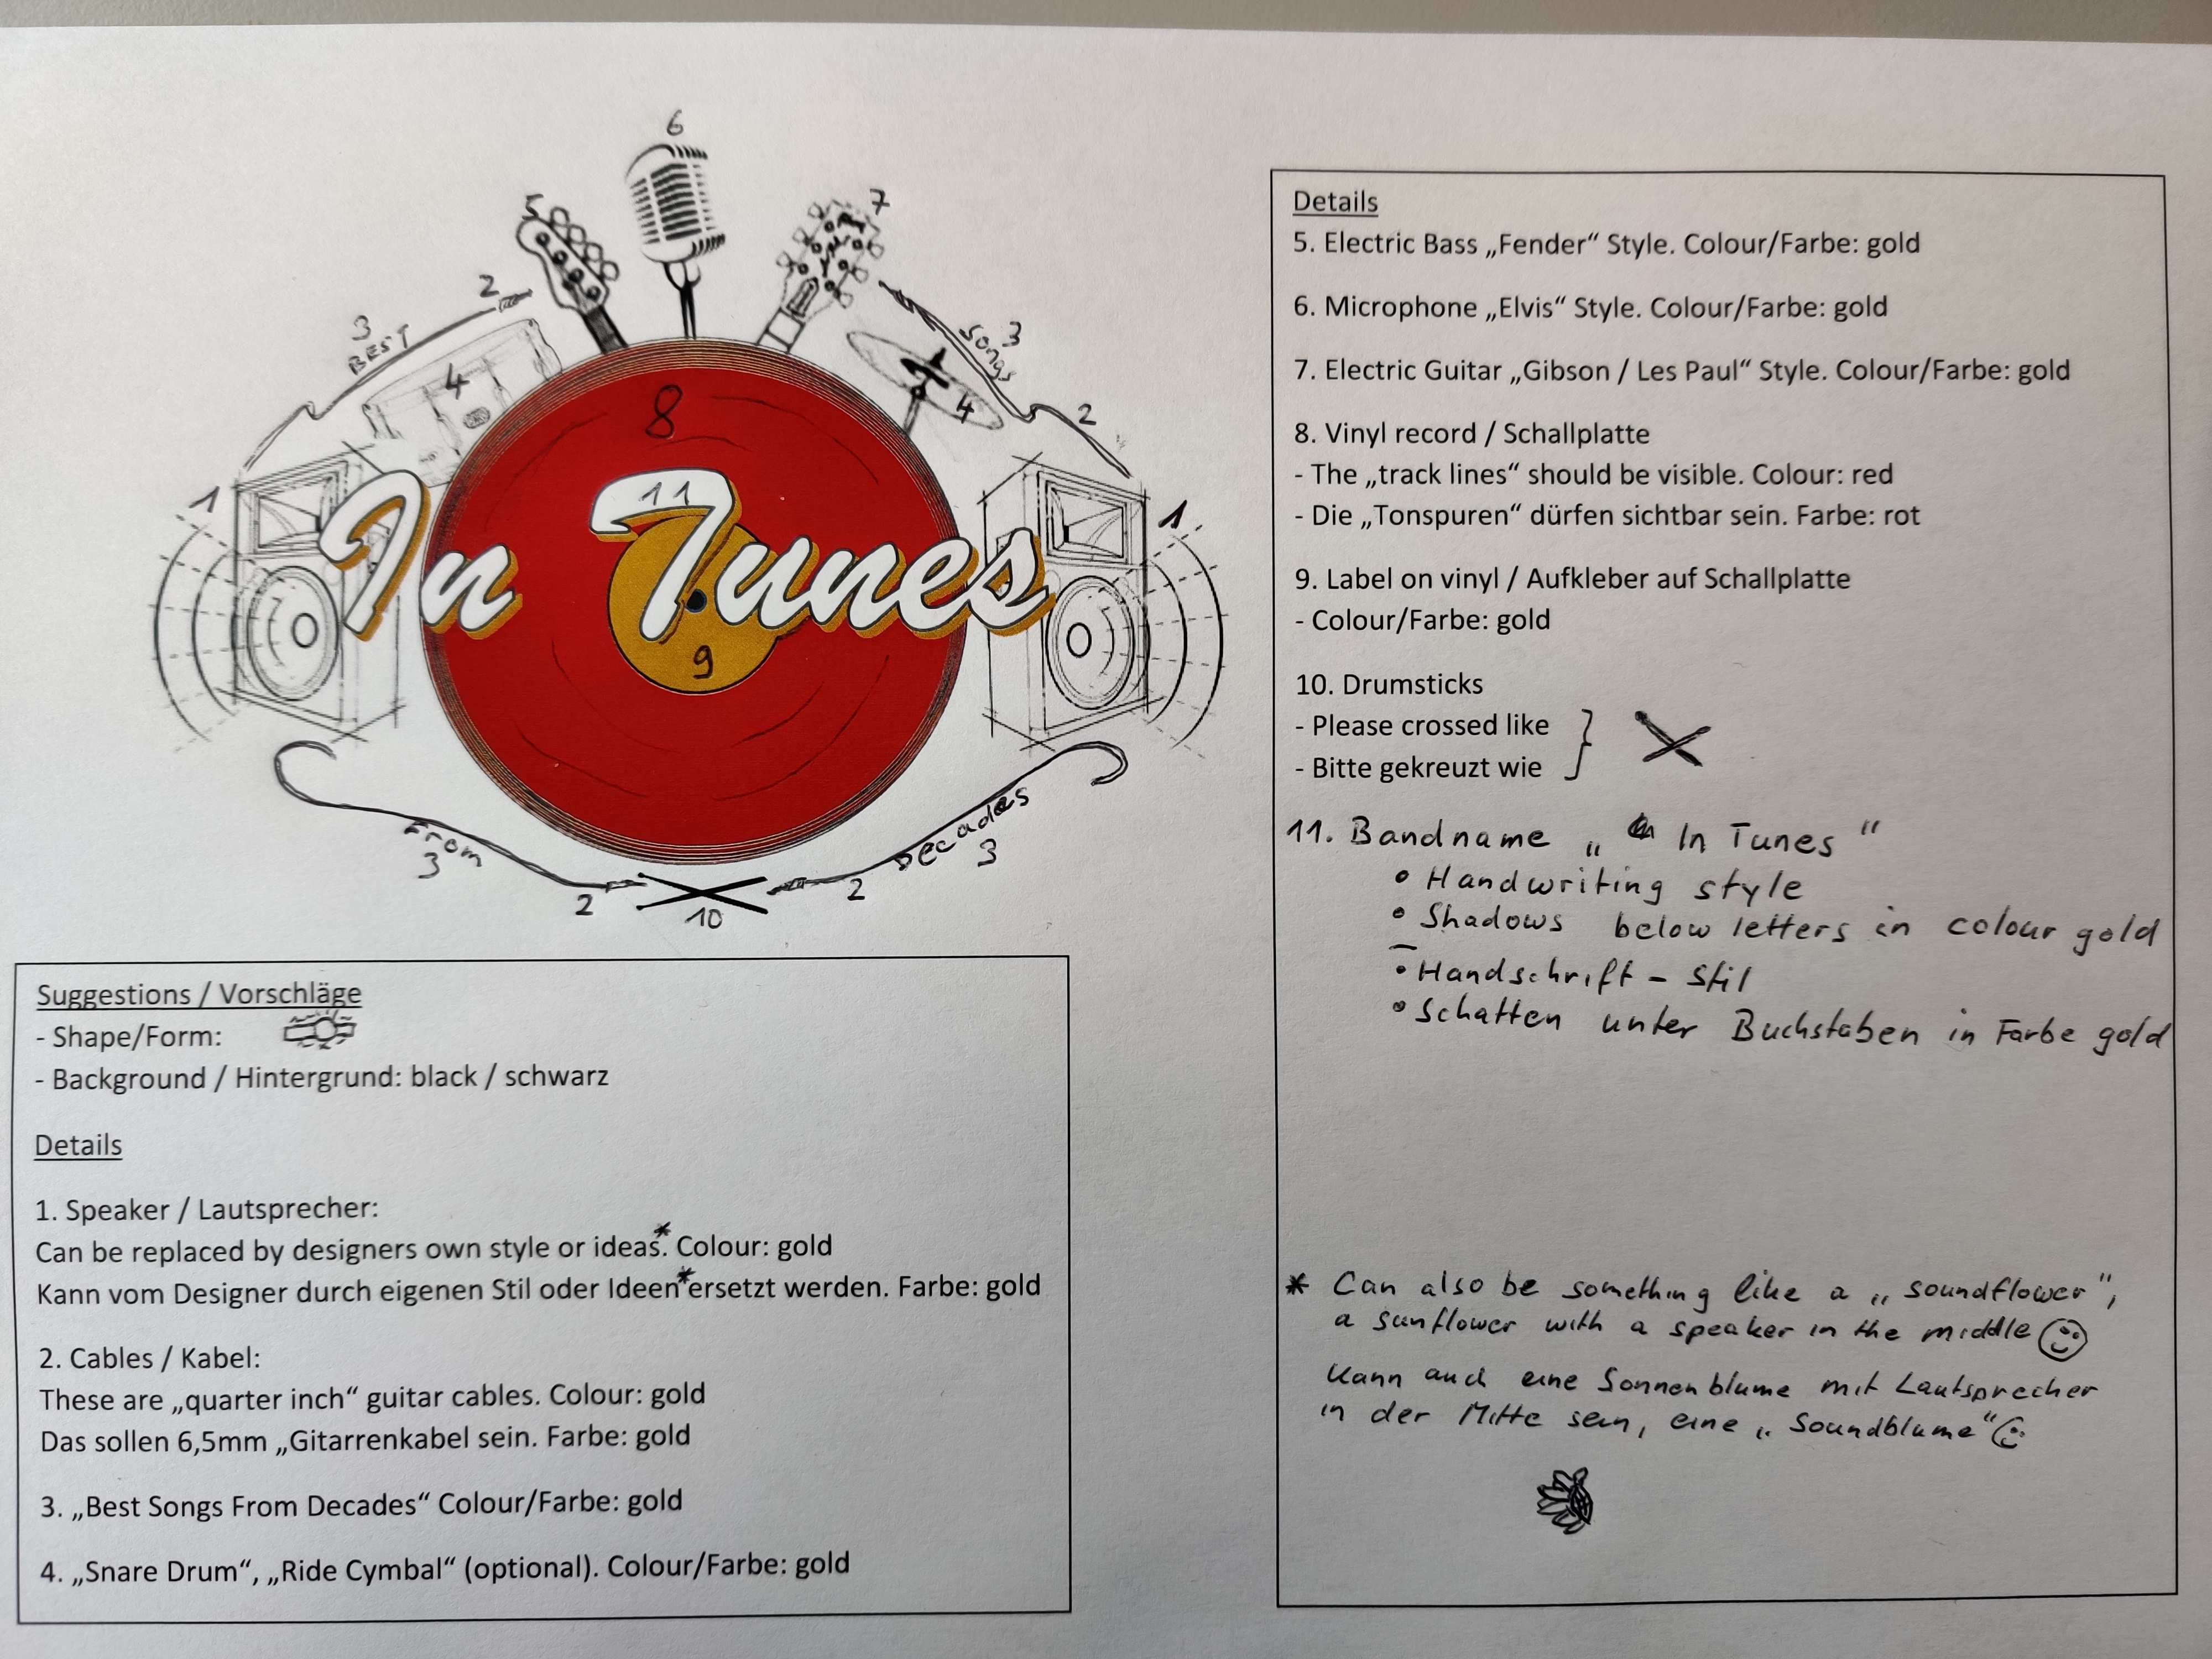 6
5
7
2
3
BEST
4
Songs
3
4
2
8
1
1
11
In Tunes
9
From
3
Decades
3
2
2
10
Suggestions / Vorschläge
- Shape/Form:
- Background / Hintergrund: black / schwarz
Details
1. Speaker / Lautsprecher:
Can be replaced by designers own style or ideas.* Colour: gold
Kann vom Designer durch eigenen Stil oder Ideen* ersetzt werden. Farbe: gold
2. Cables / Kabel:
These are „quarter inch“ guitar cables. Colour: gold
Das sollen 6,5mm „Gitarrenkabel sein. Farbe: gold
3. „Best Songs From Decades“ Colour/Farbe: gold
4. „Snare Drum“, „Ride Cymbal“ (optional). Colour/Farbe: gold
Details
5. Electric Bass „Fender“ Style. Colour/Farbe: gold
6. Microphone „Elvis“ Style. Colour/Farbe: gold
7. Electric Guitar „Gibson / Les Paul“ Style. Colour/Farbe: gold
8. Vinyl record / Schallplatte
- The „track lines“ should be visible. Colour: red
- Die „Tonspuren“ dürfen sichtbar sein. Farbe: rot
9. Label on vinyl / Aufkleber auf Schallplatte
- Colour/Farbe: gold
10. Drumsticks
- Please crossed like
- Bitte gekreuzt wie
11. Bandname „ In Tunes “
• Handwriting style
• Shadows below letters in colour gold
• Handschrift - Stil
• Schatten unter Buchstaben in Farbe gold
* Can also be something like a „soundflower“,
a sunflower with a speaker in the middle
Kann auch eine Sonnenblume mit Lautsprecher
in der Mitte sein, eine „Soundblume“